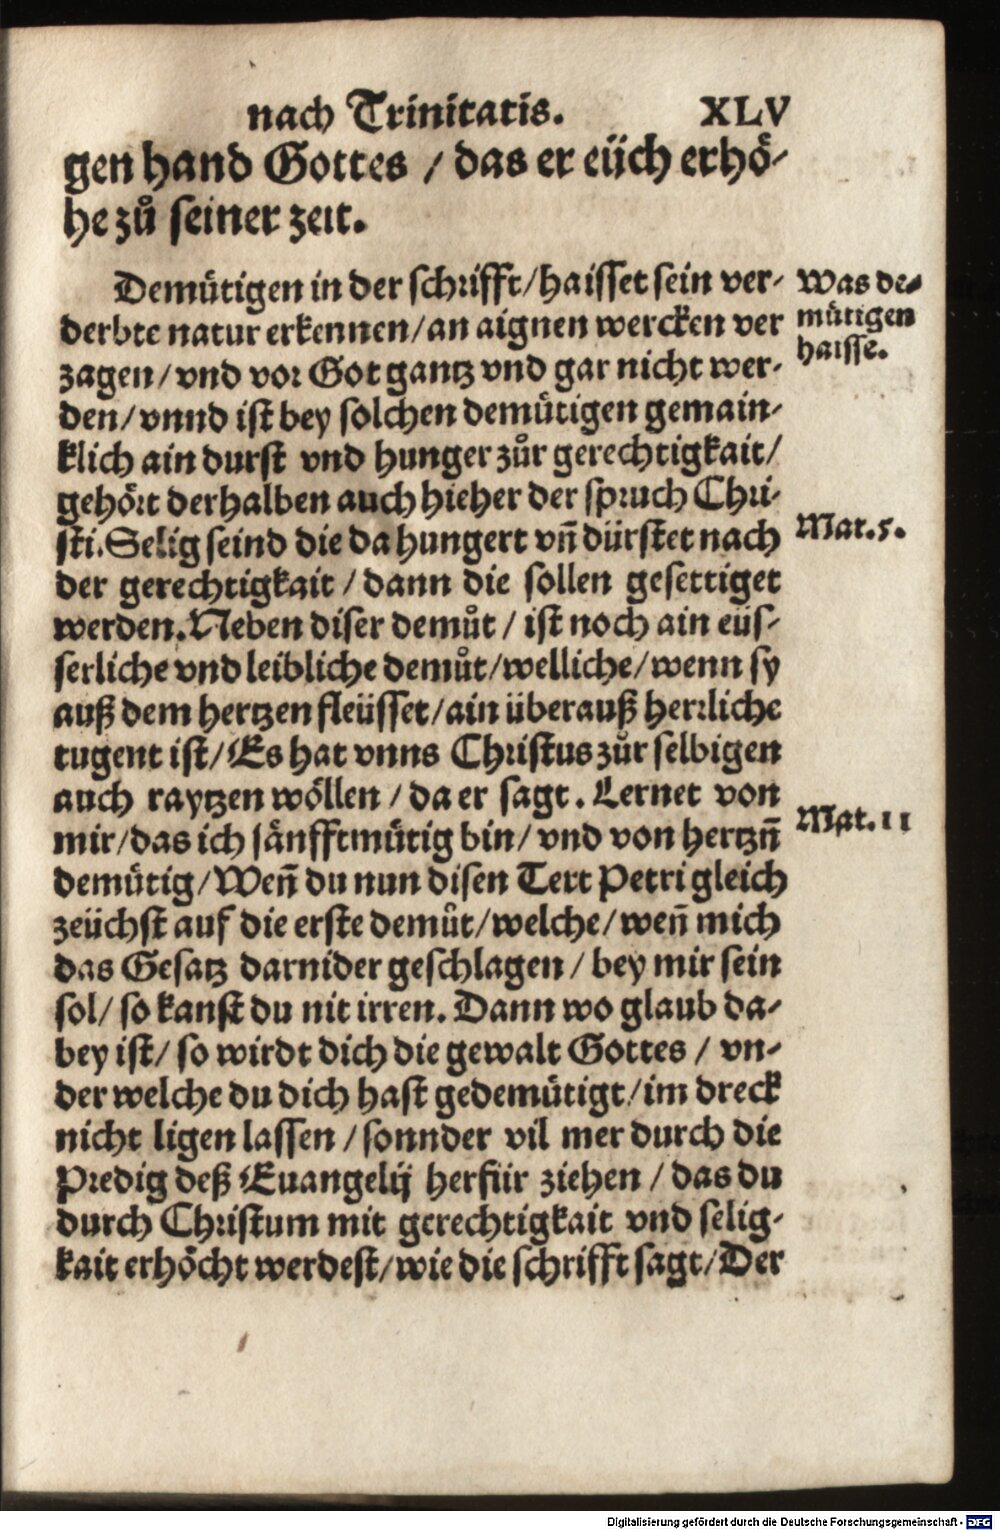 nach Trinitatis. XLV
gen hand Gottes / das er eüch erhö-
he zů seiner zeit.
Demütigen in der schrifft/haisset sein ver-
Was de-
derbte natur erkennen/an aignen wercken ver
mütigen
zagen/vnd vor Got gantz vnd gar nicht wer-
haisse.
den/vnnd ist bey solchen demütigen gemain-
klich ain durst vnd hunger zůr gerechtigkait/
gehört derhalben auch hieher der spruch Chri-
sti. Selig seind die da hungert vñ dürstet nach
Mat.5.
der gerechtigkait / dann die sollen gesettiget
werden. Neben diser demůt / ist noch ain eüs-
serliche vnd leibliche demůt/welliche/wenn sy
auß dem hertzen fleüsset/ain überauß herrliche
tugent ist/Es hat vnns Christus zůr selbigen
auch raytzen wöllen / da er sagt. Lernet von
mir/das ich sänfftmütig bin/vnd von hertzñ
Mat.11
demütig/Weñ du nun disen Text Petri gleich
zeüchst auf die erste demůt/welche/weñ mich
das Gesatz darnider geschlagen / bey mir sein
sol/ so kanst du nit irren. Dann wo glaub da-
bey ist/ so wirdt dich die gewalt Gottes / vn-
der welche du dich hast gedemütigt/im dreck
nicht ligen lassen / sonnder vil mer durch die
Predig deß Euangelij herfür ziehen / das du
durch Christum mit gerechtigkait vnd selig-
kait erhöcht werdest/wie die schrifft sagt/Der
Digitalisierung gefördert durch die Deutsche Forschungsgemeinschaft - DFG